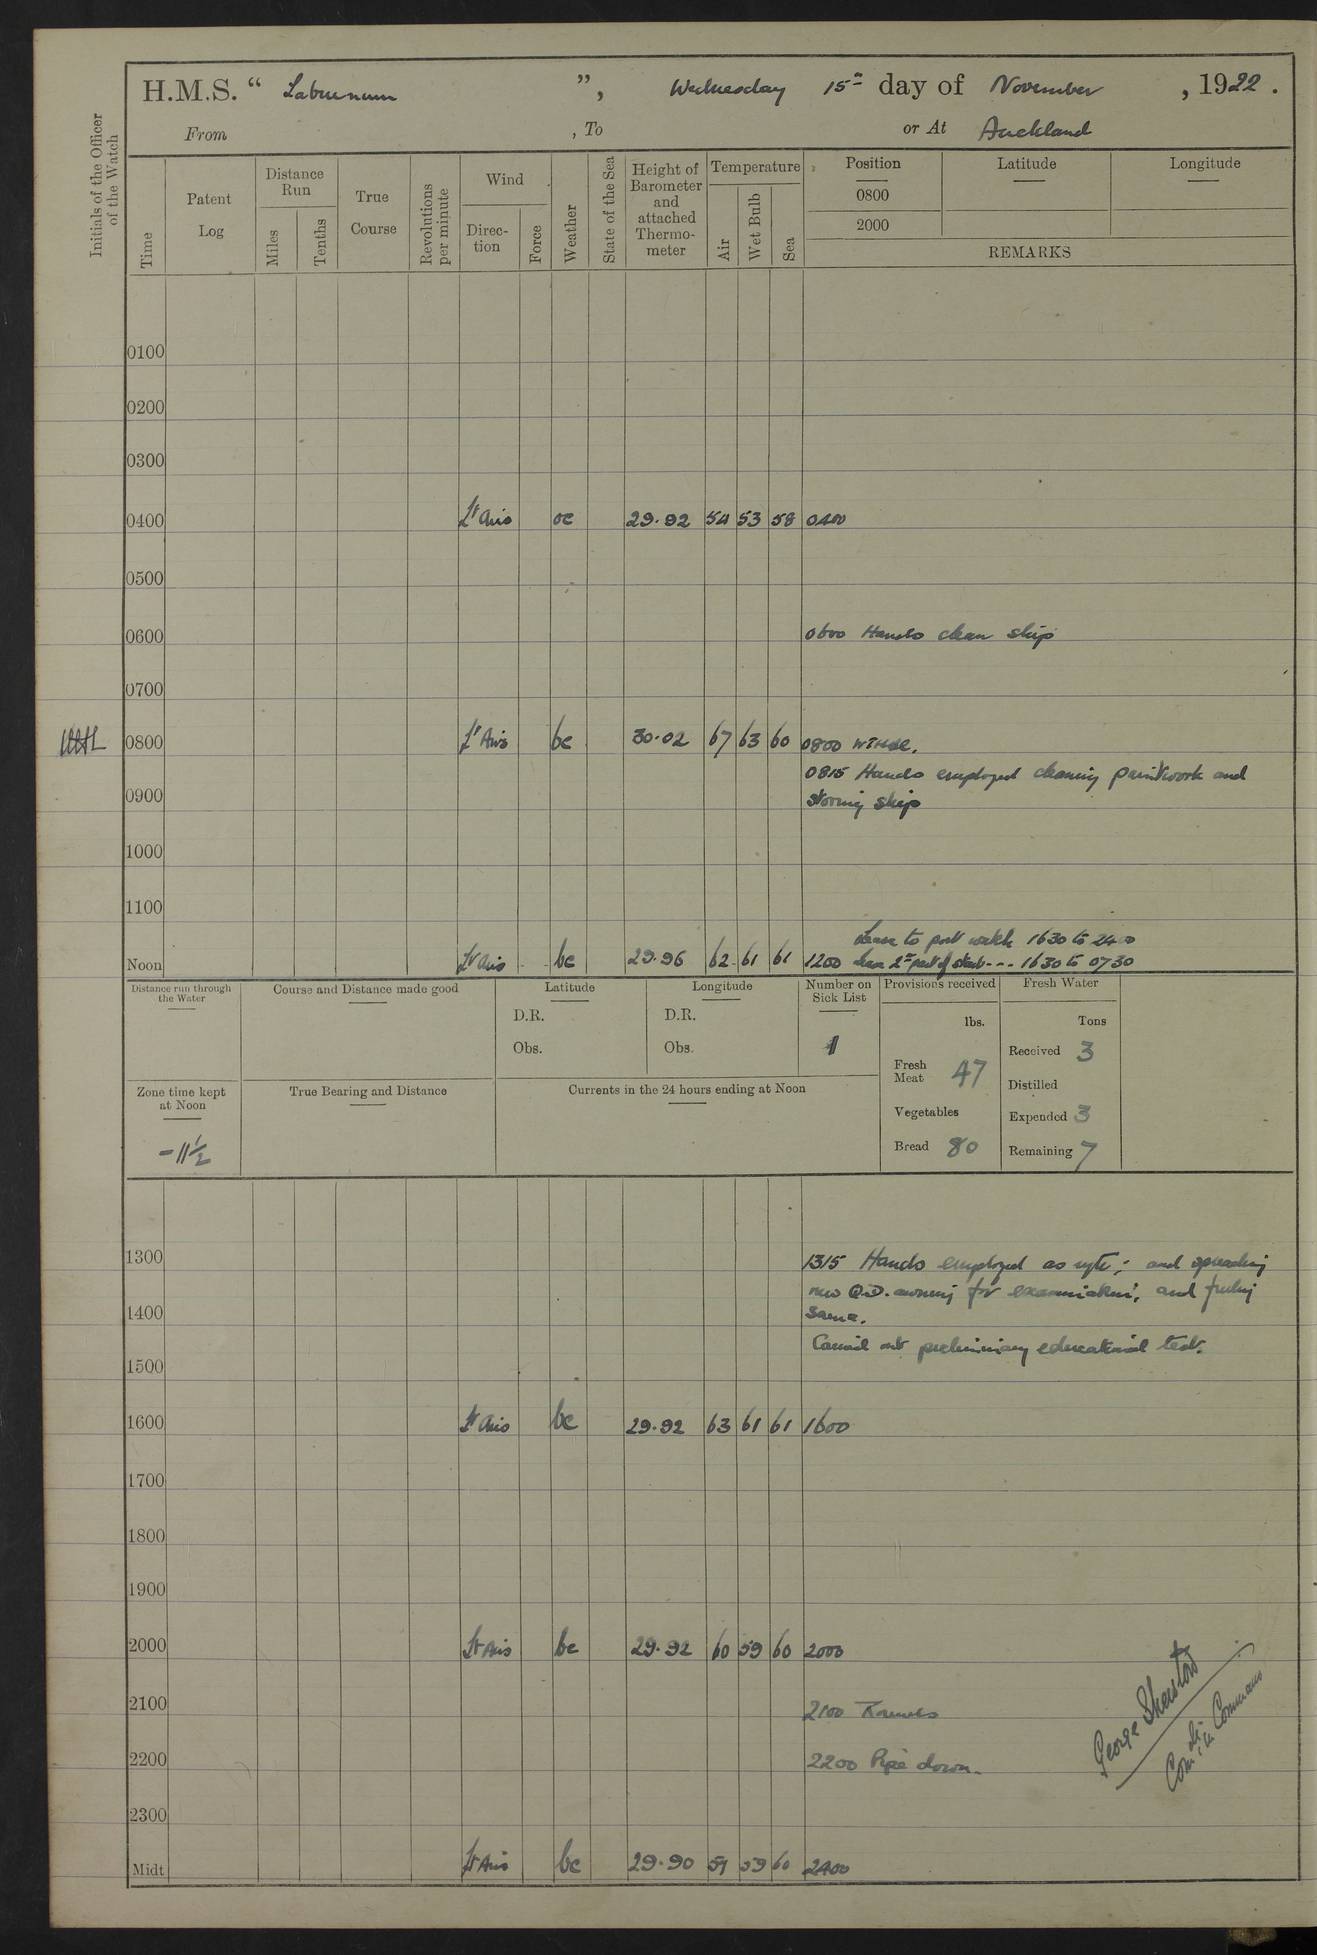 H.M.S. “ Laburnum ”, Wednesday 15th day of November , 1922 .
From , To or At Auckland
Initials of the Officer of the Watch
Time
Patent Log
Distance Run
Miles
Tenths
True Course
Revolutions per minute
Wind
Direc-tion
Force
Weather
State of the Sea
Height of Barometer and attached Thermo-meter
Temperature
Air
Wet Bulb
Sea
Position
Latitude
Longitude
0800
2000
REMARKS
0100
0200
0300
0400 Lt Airs oc 29.92 54 53 58 0400
0500
0600 0600 Hands clean ship
0700
0800 Lt Airs bc 30.02 67 63 60 0800
0815 Hands employed cleaning paintwork and
0900 storing ship
1000
1100
Leave to port watch 1630 to 2400
Noon Lt Airs bc 29.96 62 61 61 1200 Leave 2nd part of starb --- 1630 to 0730
Distance run through the Water
Course and Distance made good
Latitude
D.R.
Obs.
Longitude
D.R.
Obs.
Number on Sick List
1
Provisions received
lbs.
Fresh Meat 47
Vegetables
Bread 80
Fresh Water
Tons
Received 3
Distilled
Expended 3
Remaining 7
Zone time kept at Noon
-11½
True Bearing and Distance
Currents in the 24 hours ending at Noon
1300 1315 Hands employed as reqte; and spreading
new Q.D. awning for examination, and furling
1400 same.
Carried out preliminary educational test.
1500
1600 Lt Airs bc 29.92 63 61 61 1600
1700
1800
1900
2000 Lt Airs bc 29.92 60 59 60 2000
2100 2100 Rounds
2200 2200 Pipe down.
2300
Midt Lt Airs bc 29.90 59 59 60 2400
George
in Command